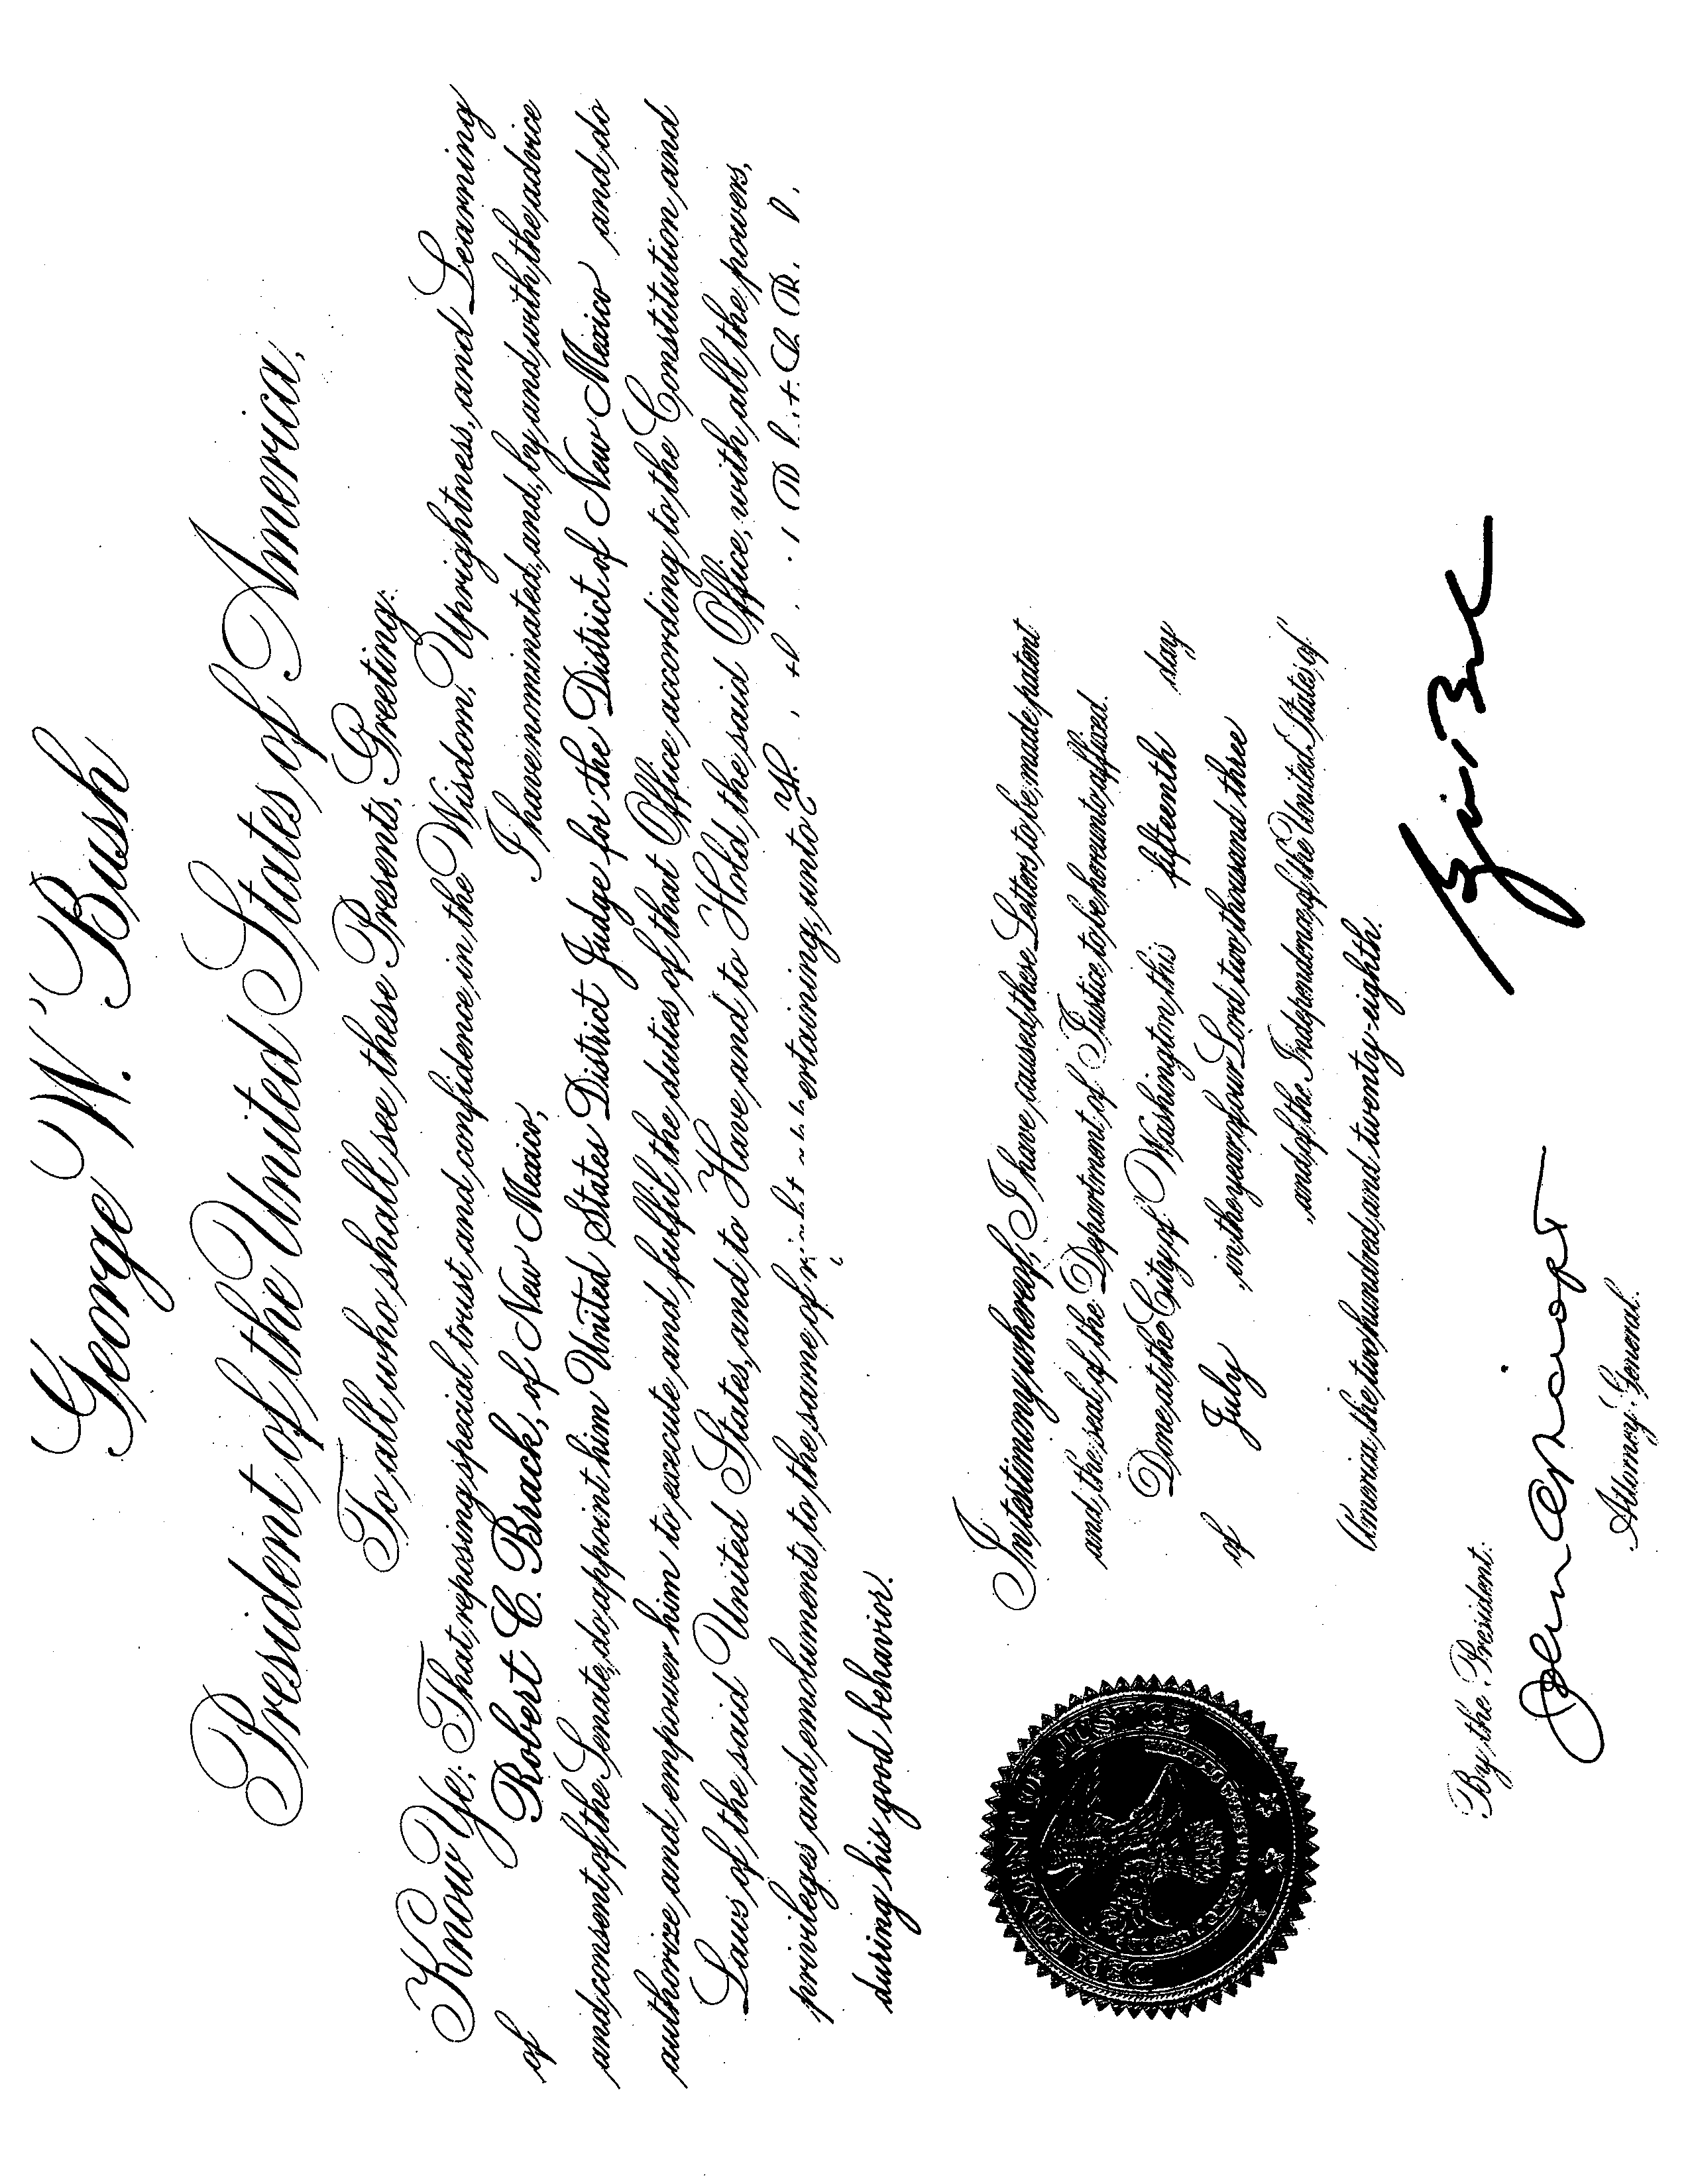 George W. Bush
President of the United States of America,
To all who shall see these Presents, Greeting:
Know Ye; That reposing special trust and confidence in the Wisdom, Uprightness, and Learning
of Robert C. Brack, of New Mexico, I have nominated, and, by and with the advice
and consent of the Senate, do appoint him United States District Judge for the District of New Mexico and do
authorize and empower him to execute and fulfil the duties of that Office according to the Constitution and
Laws of the said United States, and to Have and to Hold the said Office, with all the powers,
privileges and emoluments to the same of right ertaining, unto
during his good behavior.
In testimony whereof, I have caused these Letters to be made patent
and the seal of the Department of Justice to be hereunto affixed.
Done at the City of Washington this fifteenth day
of July in the year of our Lord two thousand three
and of the Independence of the United States of
America the two hundred and twenty-eighth.
By the President:
Attorney General.